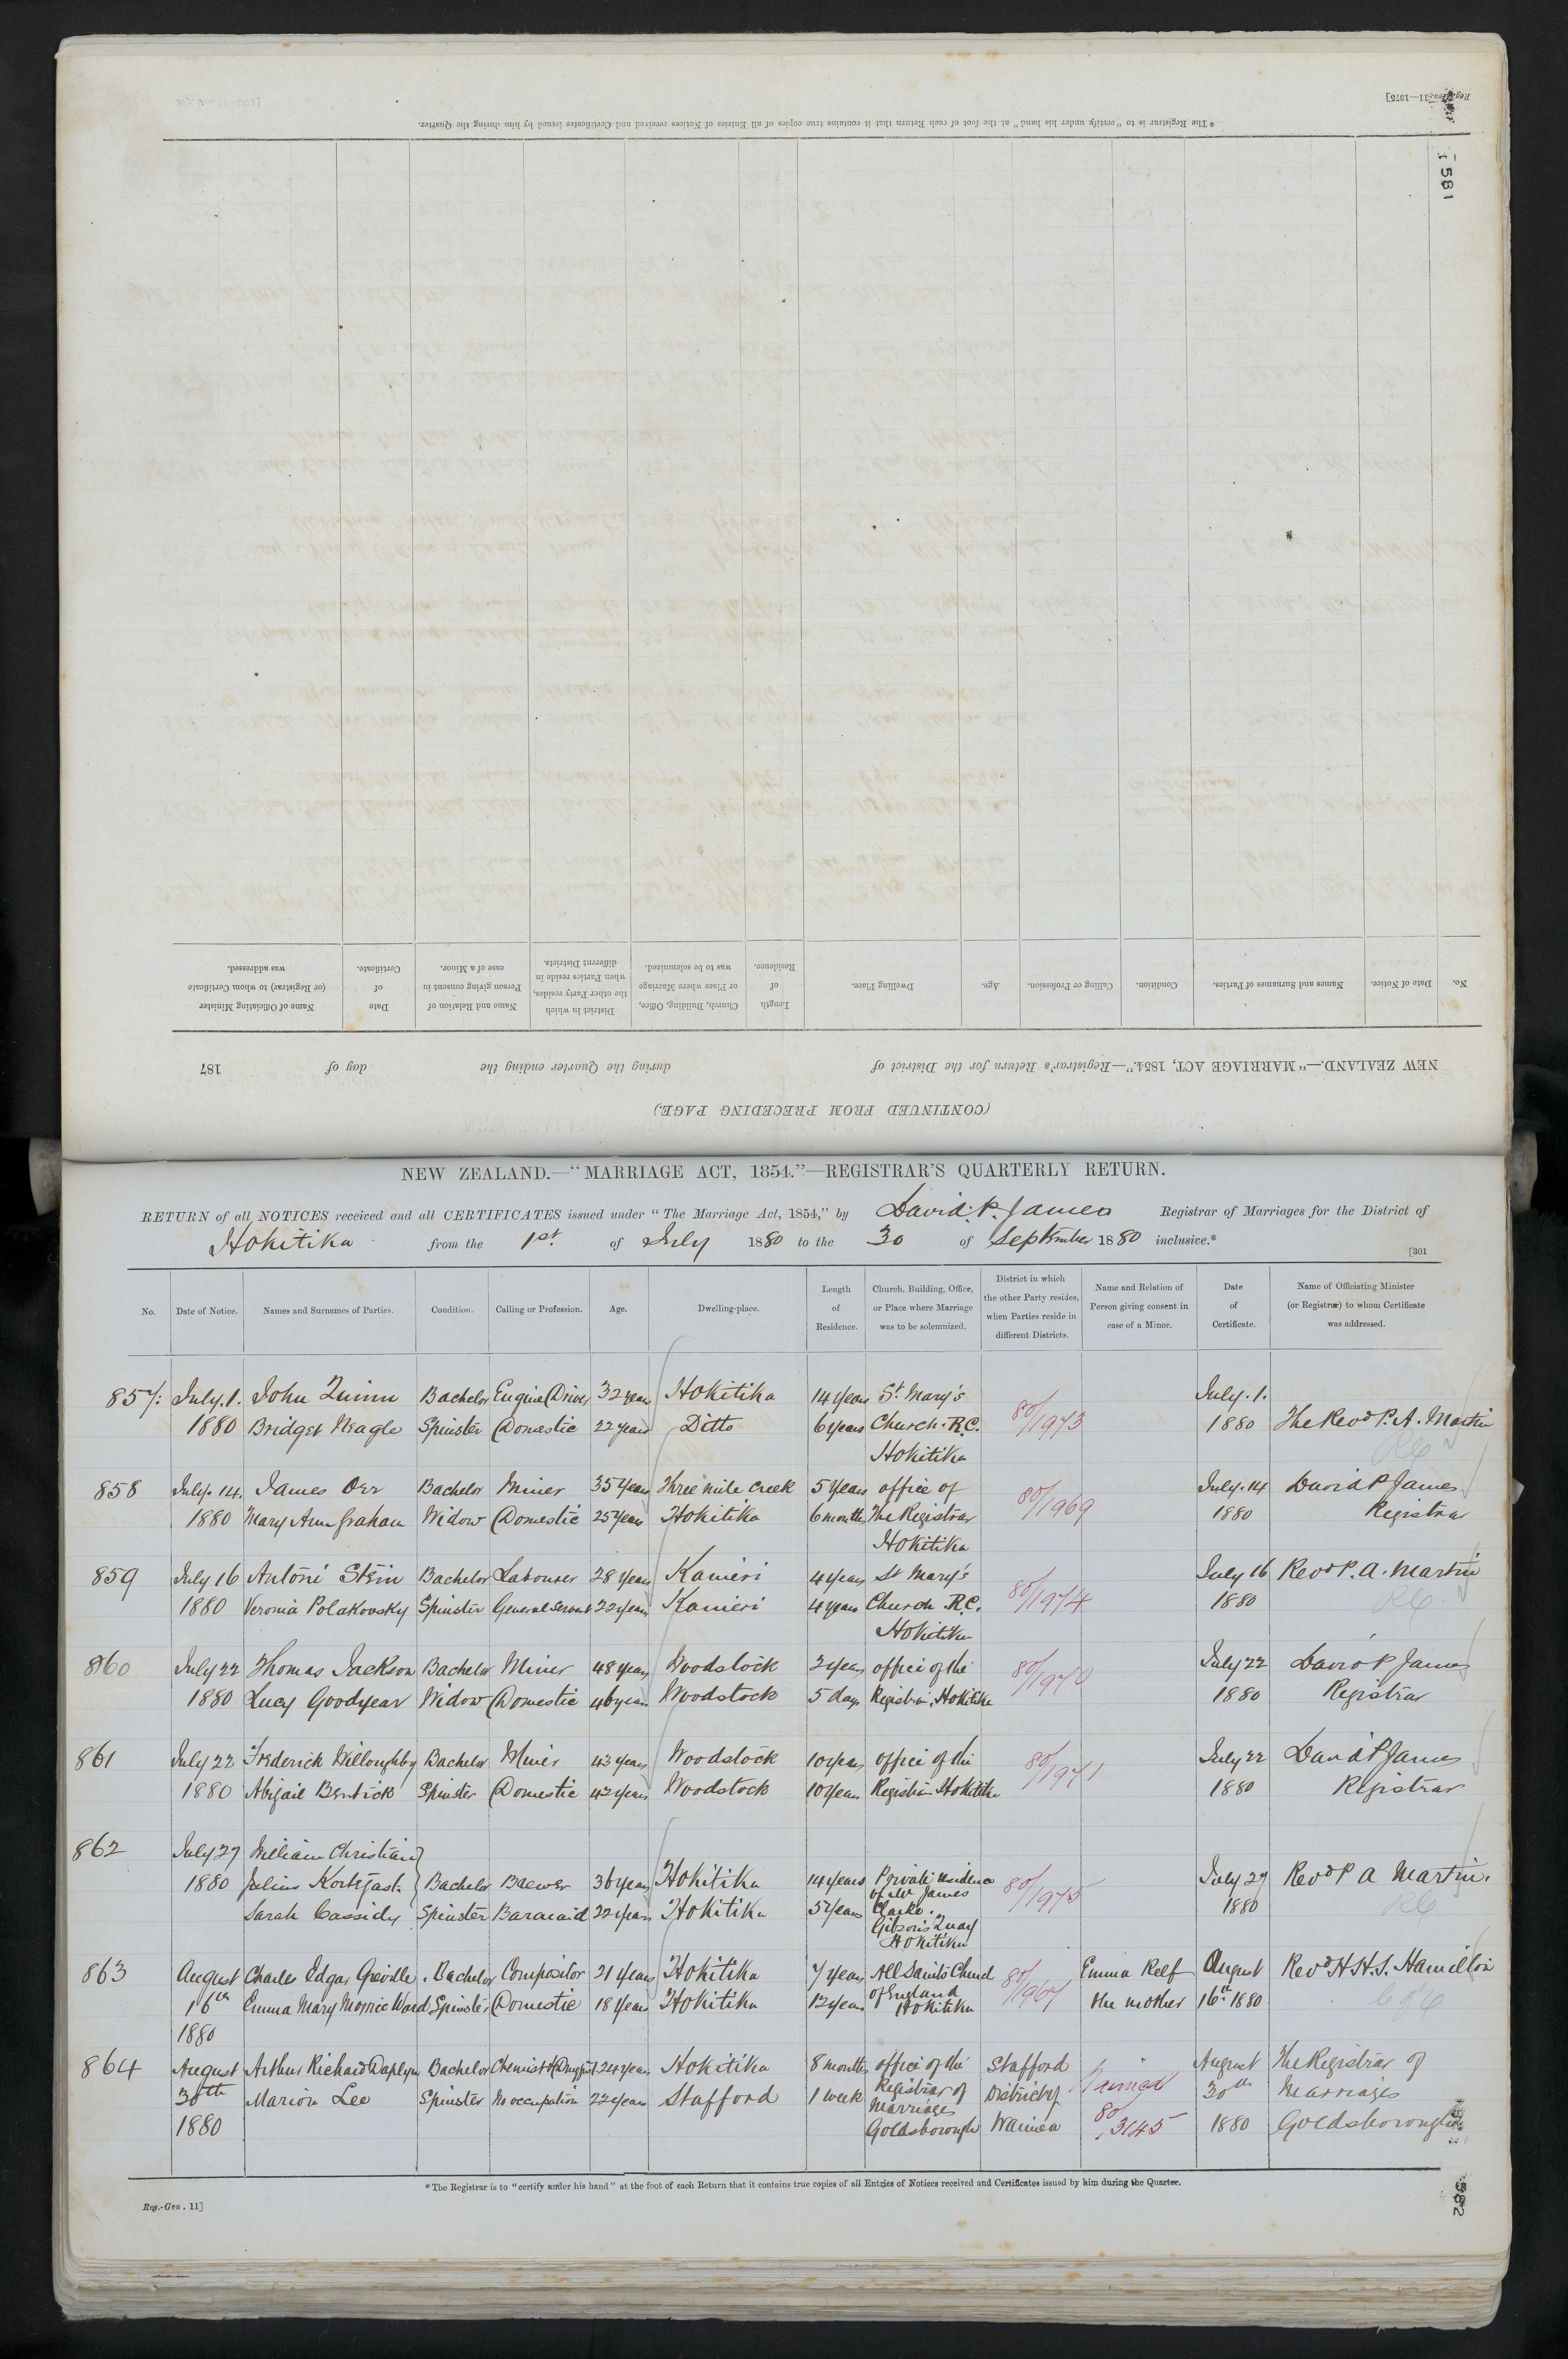 Reg.-Gen. 11—1375]
* The Registrar is to "certify under his hand" at the foot of each Return that it contains true copies of all Entries of Notices received and Certificates issued by him during the Quarter.
581
No. Date of Notice. Names and Surnames of Parties. Condition. Calling or Profession. Age. Dwelling Place. Length of Residence. Church, Building, Office, or Place where Marriage was to be solemnized. District in which the other Party resides, when Parties reside in different Districts. Name and Relation of Person giving consent in case of a Minor. Date of Certificate. Name of Officiating Minister (or Registrar) to whom Certificate was addressed.
NEW ZEALAND.—"MARRIAGE ACT, 1854."—Registrar's Return for the District of during the Quarter ending the day of 187
(CONTINUED FROM PRECEDING PAGE.)
NEW ZEALAND.—"MARRIAGE ACT, 1854."—REGISTRAR'S QUARTERLY RETURN.
RETURN of all NOTICES received and all CERTIFICATES issued under "The Marriage Act, 1854," by David. P. James Registrar of Marriages for the District of
Hokitika from the 1st of July 1880 to the 30 of September 1880 inclusive.*
[301
No. Date of Notice. Names and Surnames of Parties. Condition. Calling or Profession. Age. Dwelling-place. Length of Residence. Church, Building, Office, or Place where Marriage was to be solemnized. District in which the other Party resides, when Parties reside in different Districts. Name and Relation of Person giving consent in case of a Minor. Date of Certificate. Name of Officiating Minister (or Registrar) to whom Certificate was addressed.
857. July. 1. John Quinn Bachelor Engine Driver 32 years Hokitika 14 years St. Mary's 80/1973 July. 1.
1880 Bridget Neagle Spinster Domestic 22 years Ditto 6 years Church. R.C. 1880 The Revd P. A. Martin
Hokitika RC
858 July. 14. James Orr Bachelor Miner 35 years Three mile Creek 5 years office of 80/1969 July. 14 David P James
1880 Mary Ann Graham Widow Domestic 25 years Hokitika 6 months The Registrar 1880 Registrar
Hokitika
859 July 16 Antoni Stein Bachelor Labourer 28 years Kanieri 4 years St Mary's 80/1974 July 16 Revd P. A. Martin
1880 Veronia Polakovsky Spinster General Servant 22 years Kanieri 4 years Church R.C. 1880 RC
Hokitika
860 July 22 Thomas Jackson Bachelor Miner 48 years Woodstock 2 years office of the 80/1970 July 22 David P James
1880 Lucy Goodyear Widow Domestic 46 years Woodstock 5 days Registrar, Hokitika 1880 Registrar
861 July 22 Frederick Willoughby Bachelor Miner 43 years Woodstock 10 years office of the 80/1971 July 22 David P James
1880 Abigail Bentick Spinster Domestic 42 years Woodstock 10 years Registrar Hokitika 1880 Registrar
862 July 27 William Christian
1880 Julius Kortegast. Bachelor Brewer 36 years Hokitika 14 years Private residence 80/1975 July 27 Revd P A Martin.
of Mr James
Sarah Cassidy Spinster Barmaid 22 years Hokitika 5 years Clarke. 1880 RC
Gibson's Quay
Hokitika
863 August Charles Edgar Greville. Bachelor Compositor 21 years Hokitika 7 years All Saints Church 80/1967 Emma Relf August Revd H. H. S. Hamilton
16th Emma Mary Morrie Ward Spinster Domestic 18 years Hokitika 12 years of England the mother 16th 1880 C of E
1880 Hokitika
864 August Arthur Richard Daplyn Bachelor Chemist & Druggist 24 years Hokitika 8 months office of the Stafford Waimea August The Registrar of
30th Marion Lee Spinster No occupation 22 years Stafford 1 week Registrar of District of 80/3145 30th Marriages
1880 Marriages Goldsborough Waimea 1880 Goldsborough
* The Registrar is to "certify under his hand" at the foot of each Return that it contains true copies of all Entries of Notices received and Certificates issued by him during the Quarter.
Reg.-Gen. 11]
582